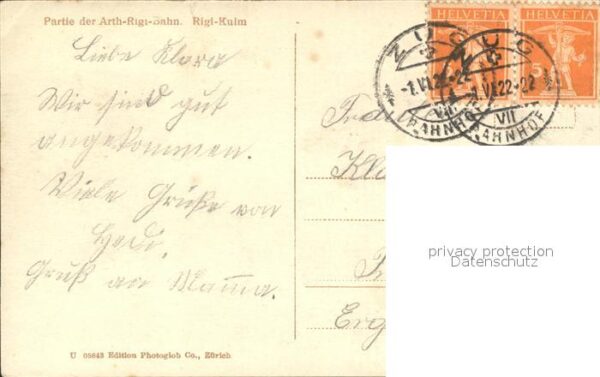 Partie der Arth-Rigi-Bahn. Rigi-Kulm
Liebe Klara
Wir sind gut
angekommen.
Viele Grüße von
Hedi.
Gruß an Mamma.
U 08643 Edition Photoglob Co., Zürich
HELVETIA
HELVETIA
5
ZUG
ZUG
-1.VI.22-22
1.VI.22-22
VII
VII
BAHNHOF
BAHNHOF
privacy protection
Datenschutz